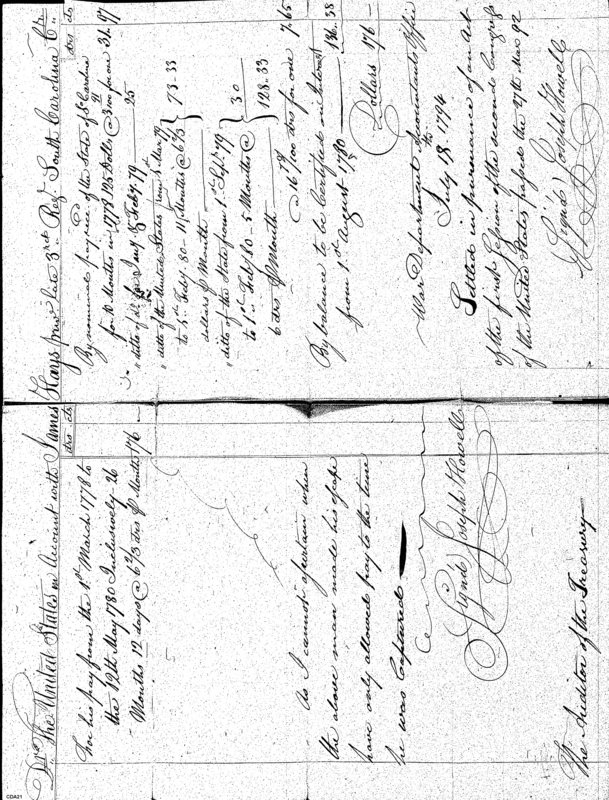 Drs The United States in Account with James Hays priv. late 3rd Regt South Carolina Crs
drs cts
For his pay from the 1st March 1778 to
the 12th May 1780 Inclusively 26
Months 12 days @ 6 2/3 drs P Month 176 –
as I cannot ascertain when
the above man made his escape
have only allowed pay to the time
he was Captured
Signd Joseph Howell
The Auditor of the Treasury
drs cts
By nominal pay recd of the State of So Carolina
for 10 Months in 1778 125 Dollrs @ for one 31.97
" ditto of do Jany & Feby 79 25
" ditto of the United States from 1st Mar 79
to 1st Feby 80 – 11 Months @ 6 2/3 } 73.33
dollars P Month
" ditto of the State from 1st Sepr 79 } 30
to 1st Feby 80 – 5 Months @
6 drs P Month 128.33
@ 16 /100 drs for one 7.65
By balance to be Certified on Interest
from 1st August 1780 136.38
Dollars 176 –
War Department Accountants Office
July 18th 1794
Settled in pursuance of an Act
of the first Session of the second Congress
of the United States passed the 27th Mar 92
Signd Joseph Howell
CDA21